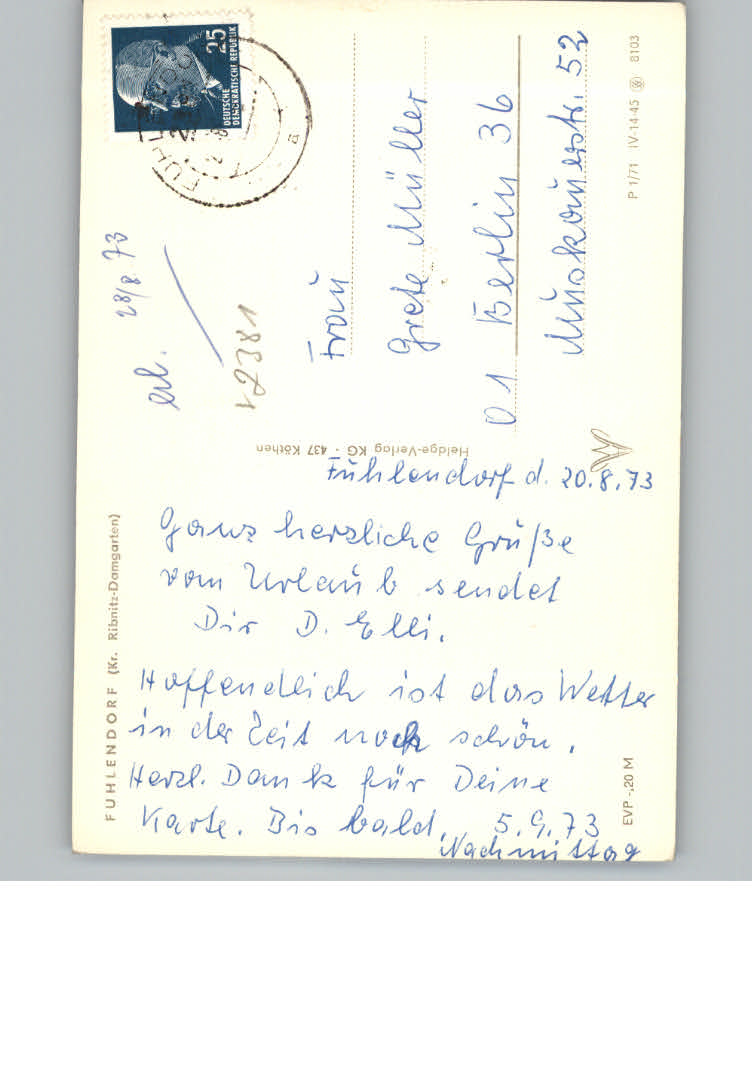 DEUTSCHE
DEMOKRATISCHE REPUBLIK
25
FUHL
28/8 73
erl.
18381
Frau
Grete Müller
01 Berlin 36
Muskauerstr. 52
P 1/71 IV-14-45 8103
Heldge-Verlag KG · 437 Köthen
FUHLENDORF (Kr. Ribnitz-Damgarten)
Fuhlendorf d. 20.8.73
Ganz herzliche Grüße
vom Urlaub sendet
Dir D. Elli.
Hoffendlich ist das Wetter
in der Zeit noch schön.
Herzl. Dank für Deine
Karte. Bis bald. 5.9.73
Nachmittag
EVP -,20 M